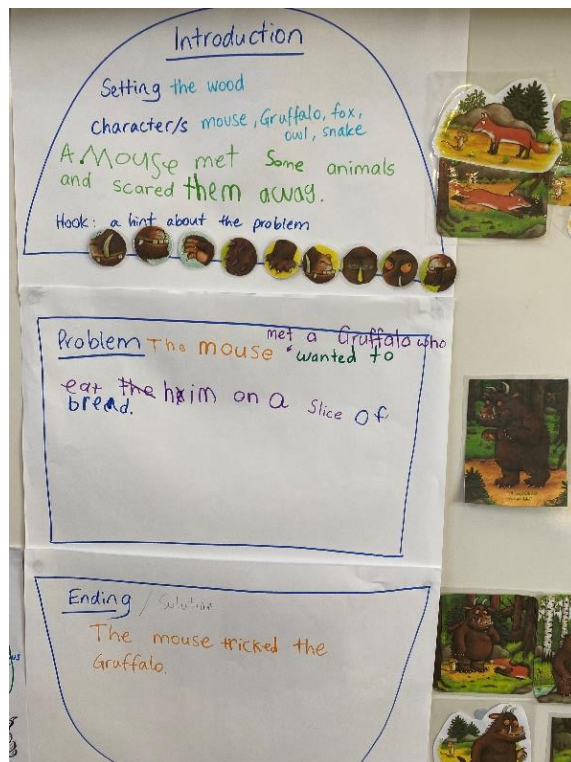 Introduction
Setting the wood
Character/s mouse, Gruffalo, fox,
owl, snake
A Mouse met Some animals
and scared them away.
Hook: a hint about the problem
Problem The mouse met a Gruffalo who
wanted to
eat the him on a Slice of
bread.
Ending / Solution
The mouse tricked the
Gruffalo.